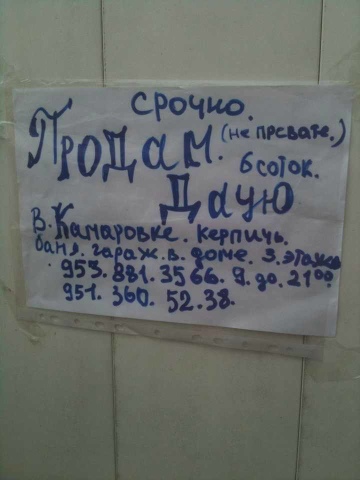 срочно.
Продам. (не прсвате.)
6 соток.
Дачую
в. Камаровке. керпичь.
баня. гараж. в. доме. 3. этажа
953. 881. 3566. 9. до. 21⁰⁰
951. 360. 52. 38.